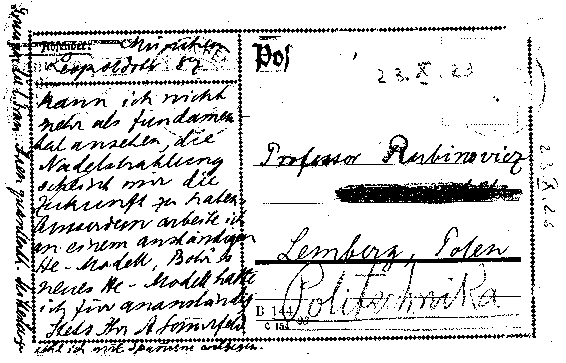 Absender:
München
Leopoldstr 87
kann ich nicht
mehr als fundamen
tal ansehen, die
Nadelstrahlung
scheint mir die
Zukunft zu haben.
Ausserdem arbeite ich
an einem anständigen
He-Modell, Bohrs
neues He-Modell halte
ich für unanständig
Stets Ihr A Sommerfeld
Pos
23.X.23
Professor Rubinowicz
Lemberg, Polen
Politechnika
B 144
C 154
23.X.23